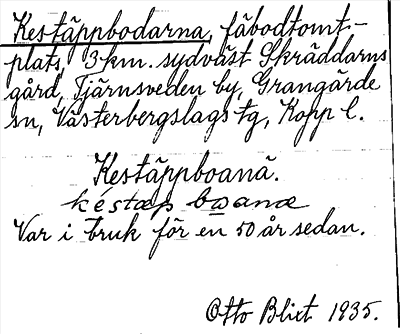 Kestäppbodarna, fäbodtomt-
plats, 3 km. sydväst Skräddarns
gård, Tjärnsveden by, Grangärde
sn, Västerbergslags tg, Kopp l.
Kestäppboanä.
késtæp boanæ
Var i bruk för en 50 år sedan.
Otto Blixt 1935.